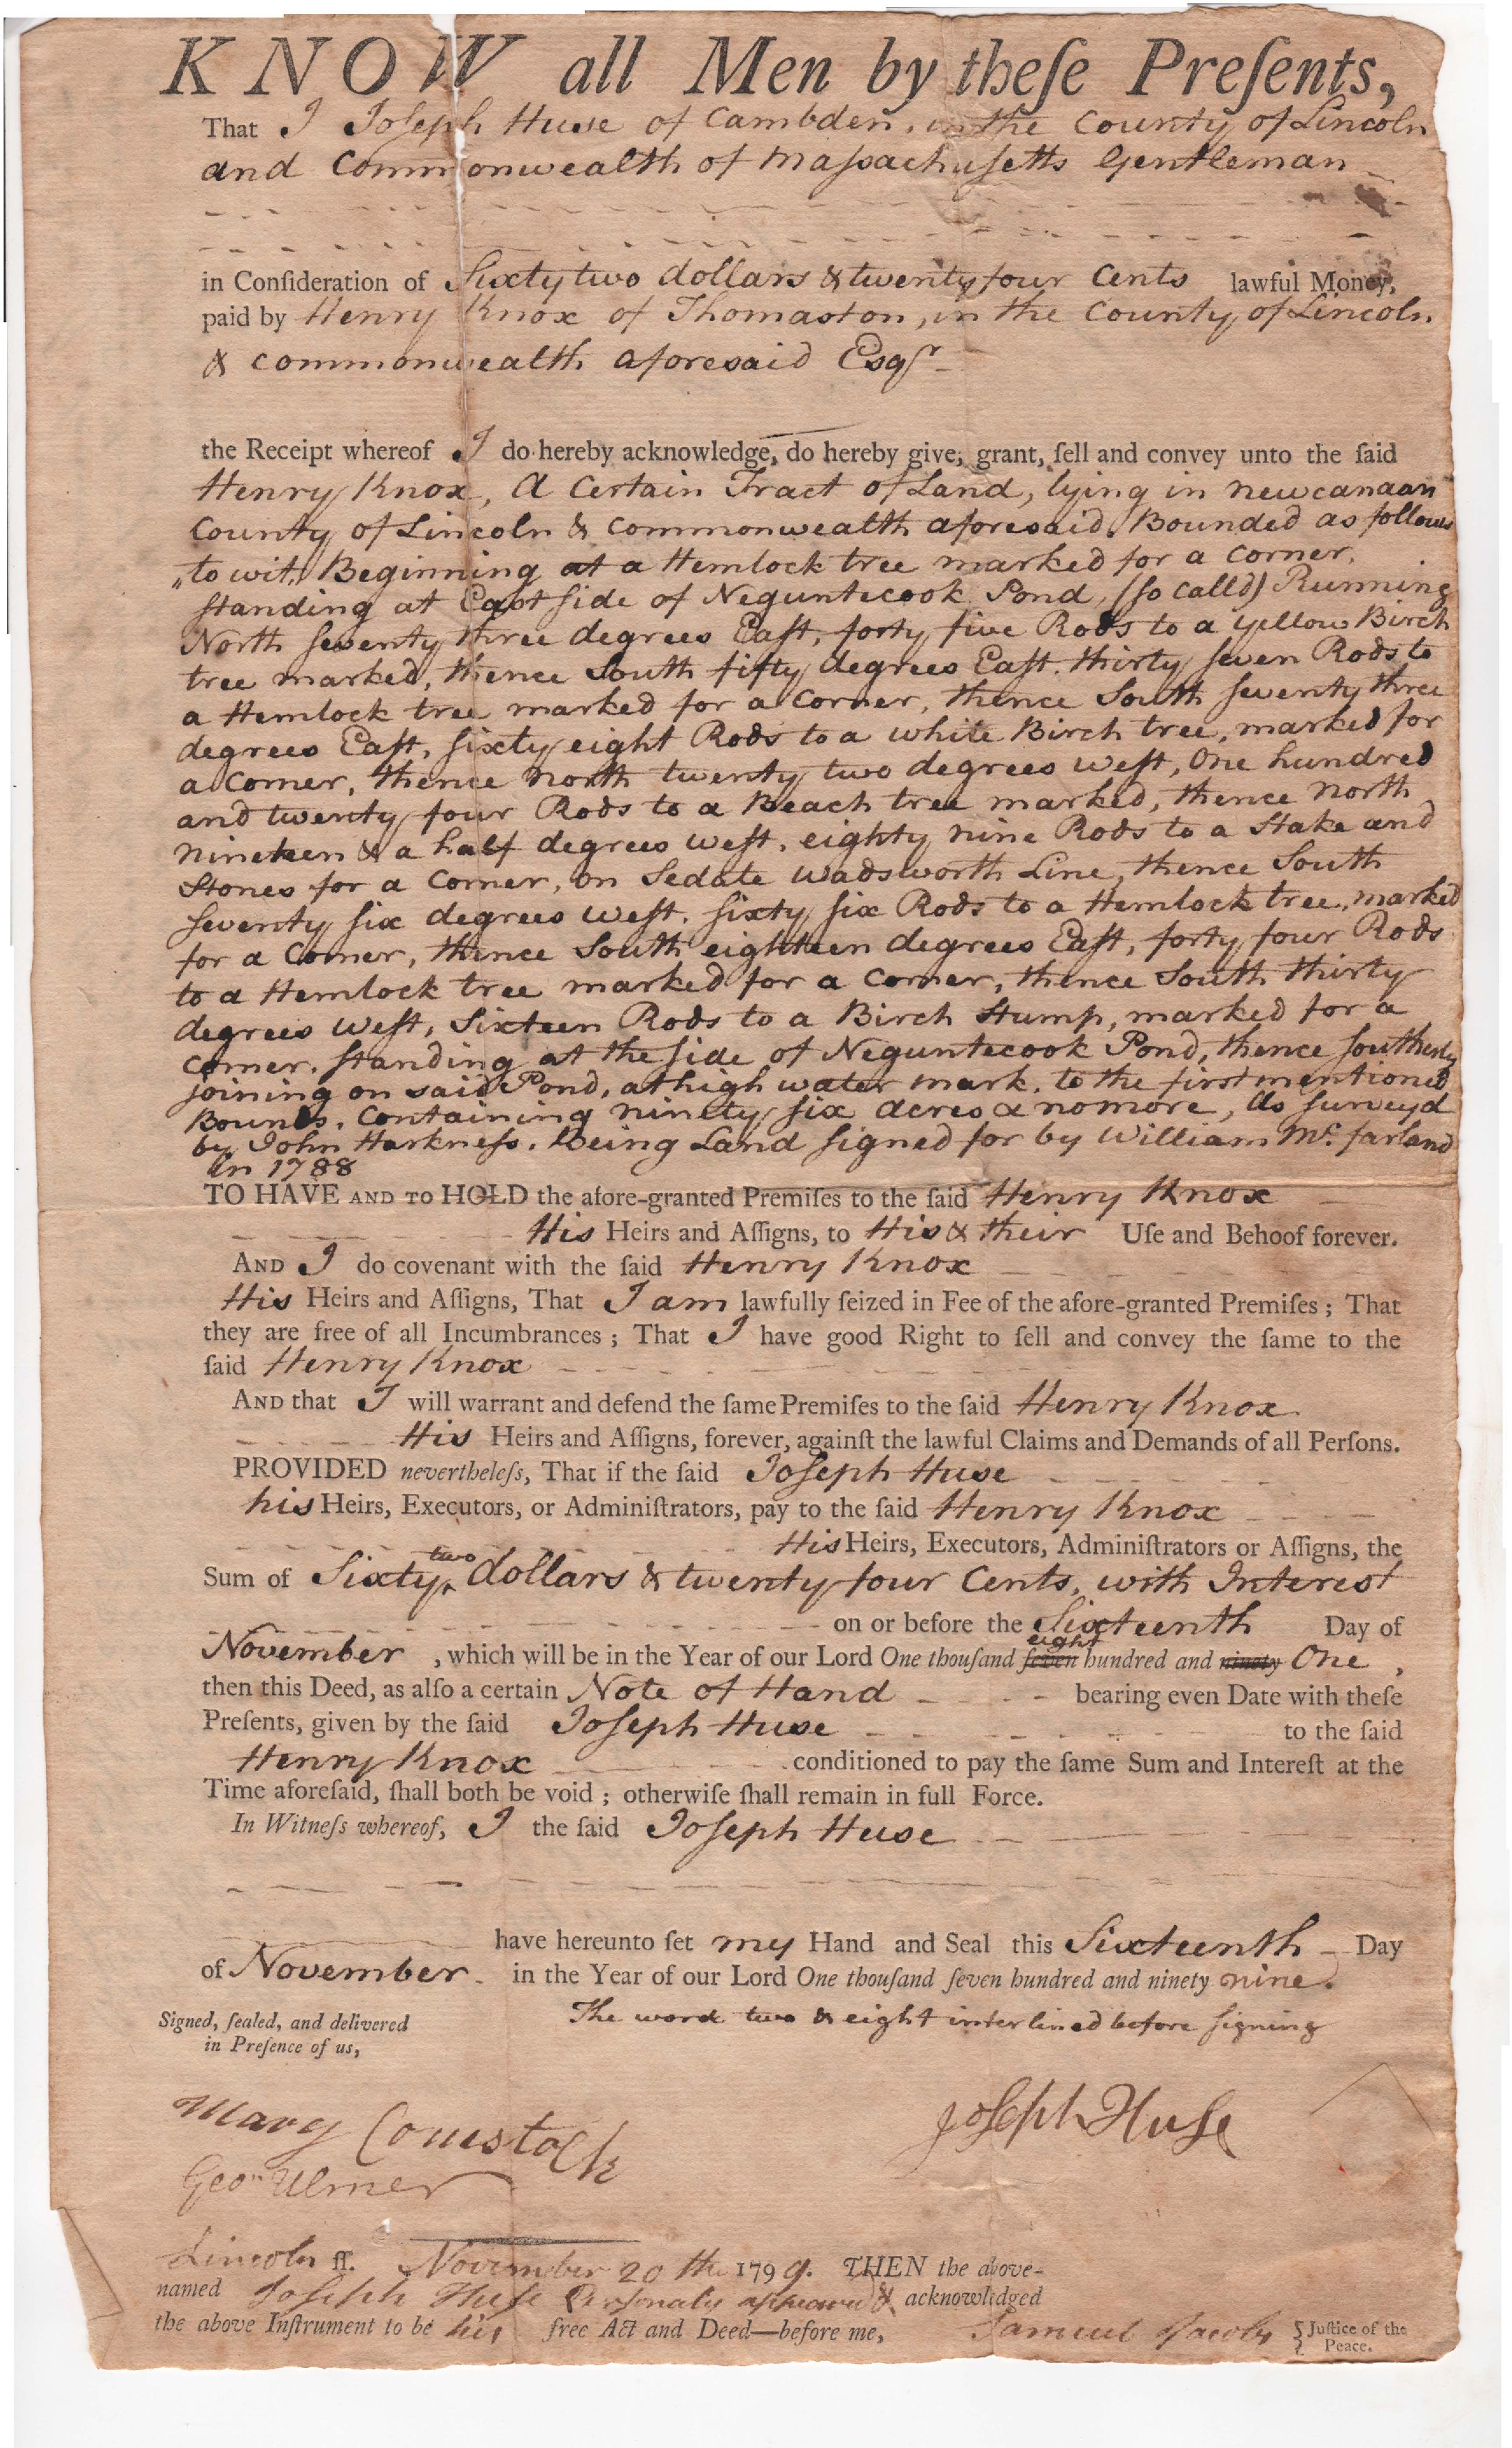 KNOW all Men by theſe Preſents,
That I Joſeph Huse of Cambden, in the County of Lincoln
and Commonwealth of Maſsachuſetts Gentleman
in Conſideration of Sixty two dollars & twenty four Cents lawful Money,
paid by Henry Knox of Thomaston, in the County of Lincoln
& commonwealth aforesaid Esqr
the Receipt whereof I do hereby acknowledge, do hereby give, grant, ſell and convey unto the ſaid
Henry Knox, A Certain Tract of Land, lying in newcanaan
County of Lincoln & commonwealth aforesaid. Bounded as follows
to wit, Beginning at a Hemlock tree marked for a corner,
ſtanding at Eaſt ſide of Neguntecook Pond, (ſo calld) Running
North ſeventy three degrees Eaſt, forty five Rods to a yellow Birch
tree marked, thence South fifty degrees Eaſt. thirty ſeven Rods to
a Hemlock tree marked for a Corner, thence South ſeventy three
degrees Eaſt, ſixty eight Rods to a white Birch tree, marked for
a Corner, thence north twenty two degrees weſt, One hundred
and twenty four Rods to a Beach tree marked, thence north
nineteen & a half degrees weſt. eighty nine Rods to a Stake and
Stones for a Corner, on Sedate Wadsworth Line, thence South
ſeventy ſix degrees weſt. ſixty ſix Rods to a Hemlock tree, marked
for a Corner, thence South eighteen degrees Eaſt, forty four Rods
to a Hemlock tree marked for a corner, thence South thirty
degrees weſt, Sixteen Rods to a Birch Stump, marked for a
corner. ſtanding at the ſide of Neguntecook Pond, thence ſoutherly
joining on said Pond, at high water mark. to the first mentioned
Bounds. Containing ninety ſix acres & no more, As ſurveyd
by John Harkneſs. Being Land ſigned for by William Mc. farland
In 1788
TO HAVE AND TO HOLD the afore-granted Premiſes to the ſaid Henry Knox
His Heirs and Aſſigns, to His & their Uſe and Behoof forever.
AND I do covenant with the ſaid Henry Knox
His Heirs and Aſſigns, That I am lawfully ſeized in Fee of the afore-granted Premiſes ; That
they are free of all Incumbrances ; That I have good Right to ſell and convey the ſame to the
ſaid Henry Knox
AND that I will warrant and defend the ſame Premiſes to the ſaid Henry Knox
His Heirs and Aſſigns, forever, againſt the lawful Claims and Demands of all Perſons.
PROVIDED nevertheleſs, That if the ſaid Joſeph Huse
his Heirs, Executors, or Adminiſtrators, pay to the ſaid Henry Knox
His Heirs, Executors, Adminiſtrators or Aſſigns, the
Sum of Sixty two dollars & twenty four Cents, with Interest
on or before the Sixteenth Day of
November, which will be in the Year of our Lord One thouſand ſeven eight hundred and ninety One,
then this Deed, as alſo a certain Note of Hand bearing even Date with theſe
Preſents, given by the ſaid Joſeph Huse to the ſaid
Henry Knox conditioned to pay the ſame Sum and Intereſt at the
Time aforeſaid, ſhall both be void ; otherwiſe ſhall remain in full Force.
In Witneſs whereof, I the ſaid Joſeph Huse
have hereunto ſet my Hand and Seal this Sixteenth Day
of November in the Year of our Lord One thouſand ſeven hundred and ninety nine.
The word two & eight interlined before ſigning
Signed, ſealed, and delivered
in Preſence of us,
Mary Comstock
Joſeph Huſe
Geo Ulmer
Lincoln ſſ. November 20th 1799. THEN the above-
named Joſeph Huſe Perſonaly appeared & acknowledged
the above Inſtrument to be his free Act and Deed—before me, Samuel Jacobs } Juſtice of the
Peace.